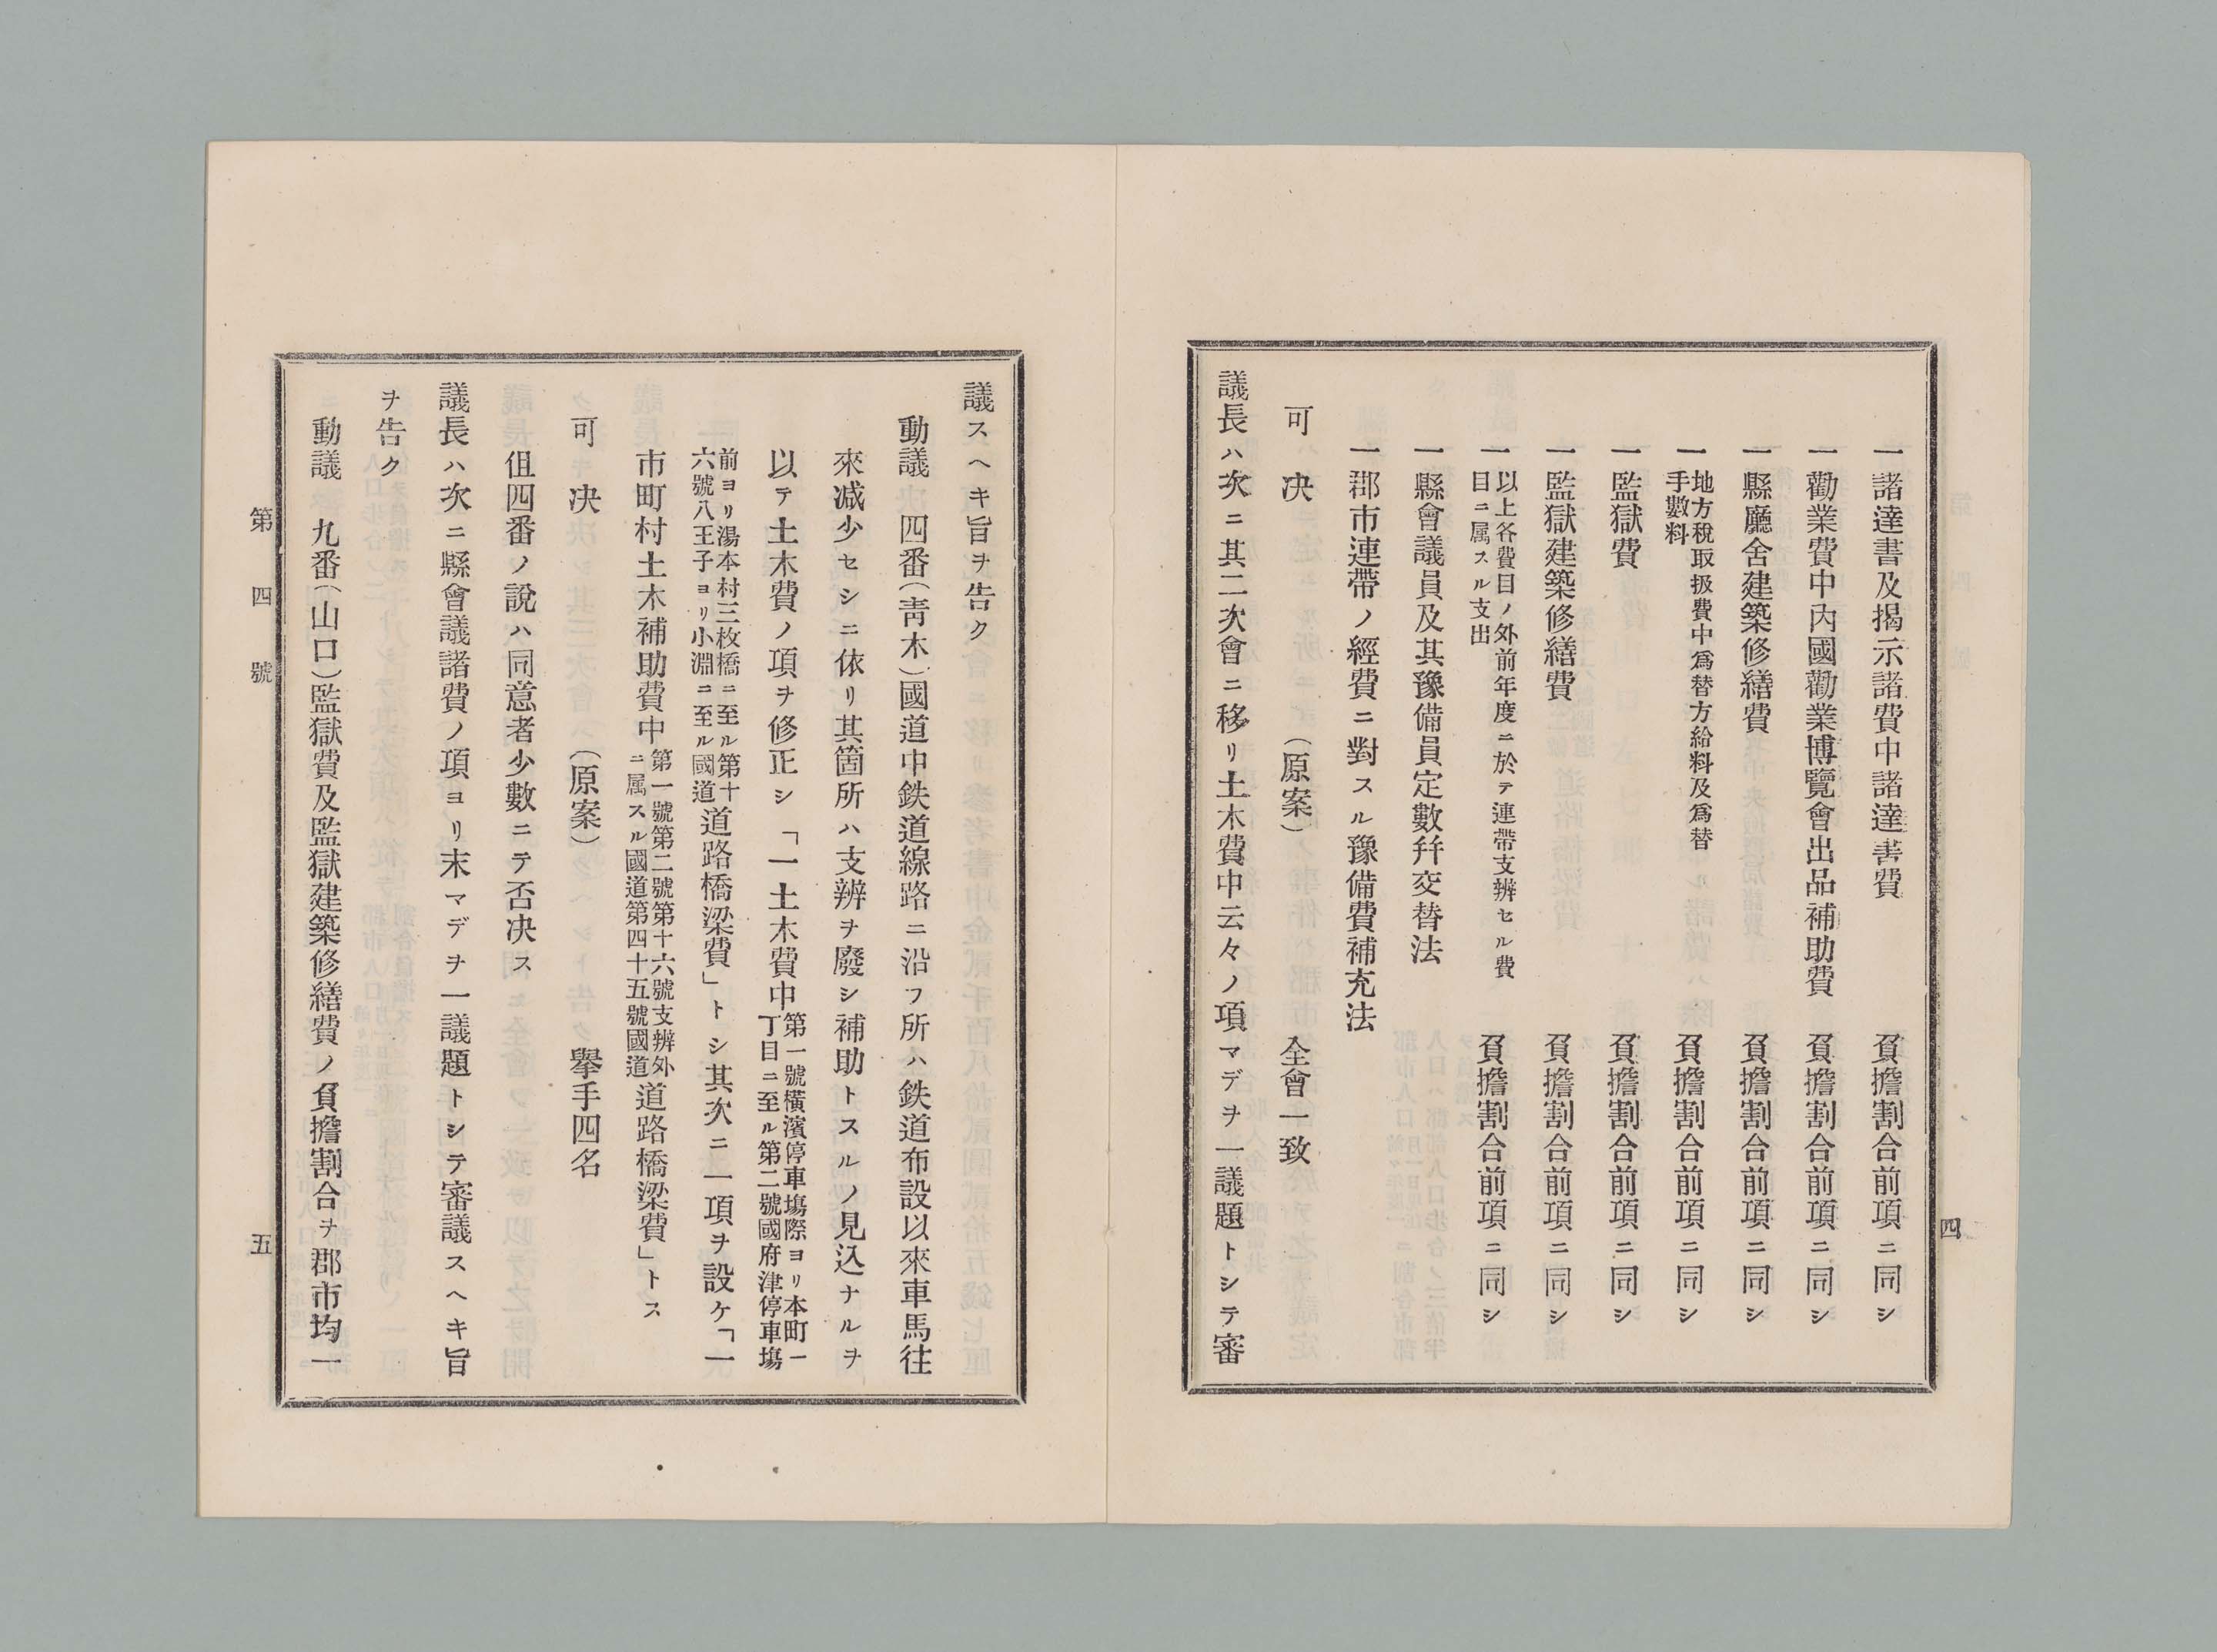 四
一諸達書及揭示諸費中諸達書費 負擔割合前項ニ同シ
一勸業費中內國勸業博覽會出品補助費 負擔割合前項ニ同シ
一縣廳舍建築修繕費 負擔割合前項ニ同シ
一地方稅取扱費中爲替方給料及爲替
手數料 負擔割合前項ニ同シ
一監獄費 負擔割合前項ニ同シ
一監獄建築修繕費 負擔割合前項ニ同シ
一以上各費目ノ外前年度ニ於テ連帶支辨セル費
目ニ属スル支出 負擔割合前項ニ同シ
一縣會議員及其豫備員定數幷交替法
一郡市連帶ノ經費ニ對スル豫備費補充法
可決 (原案) 全會一致
議長ハ次ニ其二次會ニ移リ土木費中云々ノ項マデヲ一議題トシテ審
議スヘキ旨ヲ告ク
動議 四番(靑木)國道中鉄道線路ニ沿フ所ハ鉄道布設以來車馬往
來减少セシニ依リ其箇所ハ支辨ヲ廢シ補助トスルノ見込ナルヲ
以テ土木費ノ項ヲ修正シ「一土木費中第一號橫濱停車塲際ヨリ本町一
丁目ニ至ル第二號國府津停車塲
前ヨリ湯本村三枚橋ニ至ル第十
六號八王子ヨリ小淵ニ至ル國道道路橋梁費」トシ其次ニ一項ヲ設ケ「一
市町村土木補助費中第一號第二號第十六號支辨外
ニ属スル國道第四十五號國道道路橋梁費」トス
可決 (原案) 擧手四名
伹四番ノ說ハ同意者少數ニテ否决ス
議長ハ次ニ縣會議諸費ノ項ヨリ末マデヲ一議題トシテ審議スヘキ旨
ヲ告ク
動議 九番(山口)監獄費及監獄建築修繕費ノ負擔割合ヲ郡市均一
第四號 五